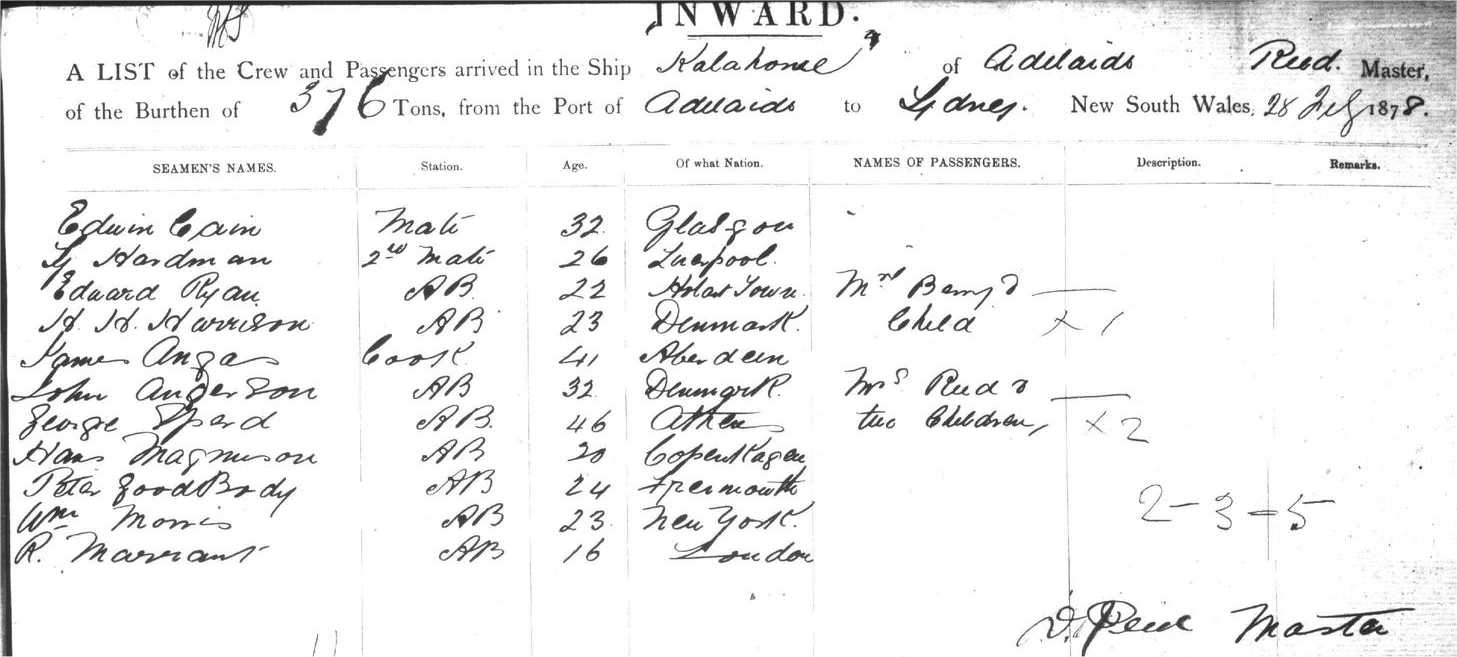 INWARD.
A LIST of the Crew and Passengers arrived in the Ship Kalahome of Adelaide Reid. Master,
of the Burthen of 376 Tons, from the Port of Adelaide to Sydney. New South Wales, 28 Feby 1878.
SEAMEN'S NAMES. Station. Age. Of what Nation. NAMES OF PASSENGERS. Description. Remarks.
Edwin Cain Mate 32 Glasgow
Hardman 2nd Mate 26 Liverpool.
Edward Ryan AB. 22 Hobart Town. Mrs Berry &
H. H. Harrison AB 23 Denmark. Child x 1
James Angas Cook 41 Aberdeen
John Anderson AB 32 Denmark. Mrs Reid &
George AB. 46 Athens two Children, x 2
Hans Magnuson AB 20 Copenhagen
Peter GoodBody AB 24
Wm Morris AB 23 New York. 2 - 3 = 5
R. Marrant AB 16 London
D. Reid Master
11